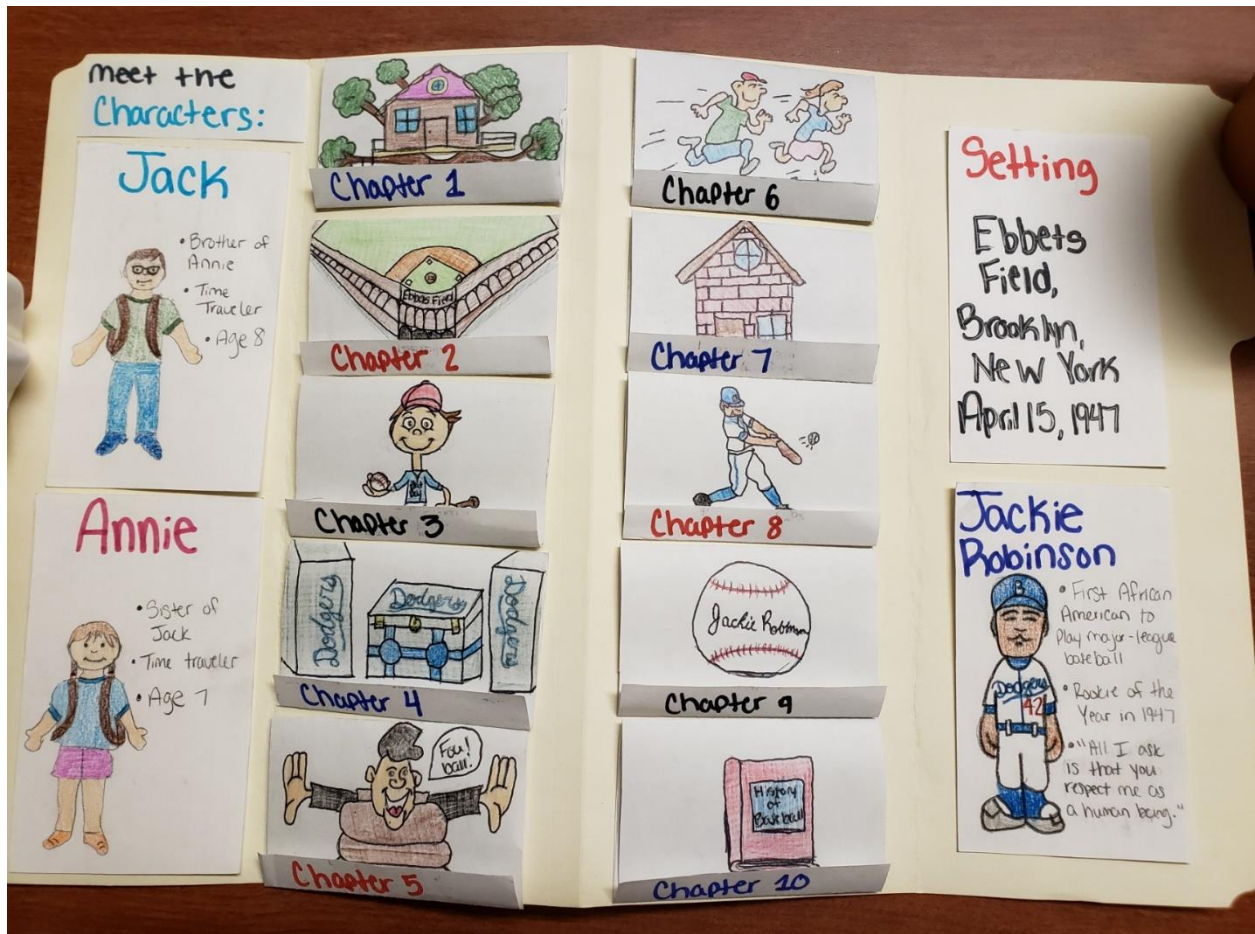 meet the
Characters:
Jack
• Brother of
Annie
• Time
Traveler
• Age 8
Annie
• Sister of
Jack
• Time traveler
• Age 7
Chapter 1
Ebbets Field
Chapter 2
Chapter 3
Dodgers
Dodgers
Dodgers
Chapter 4
Foul
ball!
Chapter 5
Chapter 6
Chapter 7
Chapter 8
Jackie Robinson
Chapter 9
History
of
Baseball
Chapter 10
Setting
Ebbets
Field,
Brooklyn,
New York
April 15, 1947
Jackie
Robinson
B
Dodgers
42
• First African
American to
Play major-league
baseball
• Rookie of the
Year in 1947
• "All I ask
is that you
respect me as
a human being."